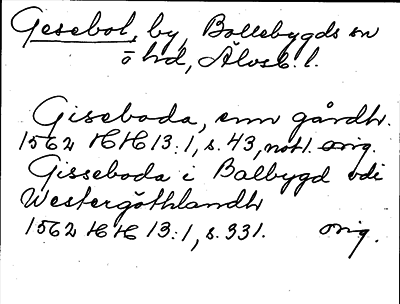 Gesebol, by, Bollebygds sn
o hd, Älvsb. l.
Giseboda, enn gårdh.
1562 HH 13:1, s. 43, not 1. orig.
Gisseboda i Balbygd vdi
Westergöthlandh
1562 HH 13:1, s. 331. orig.